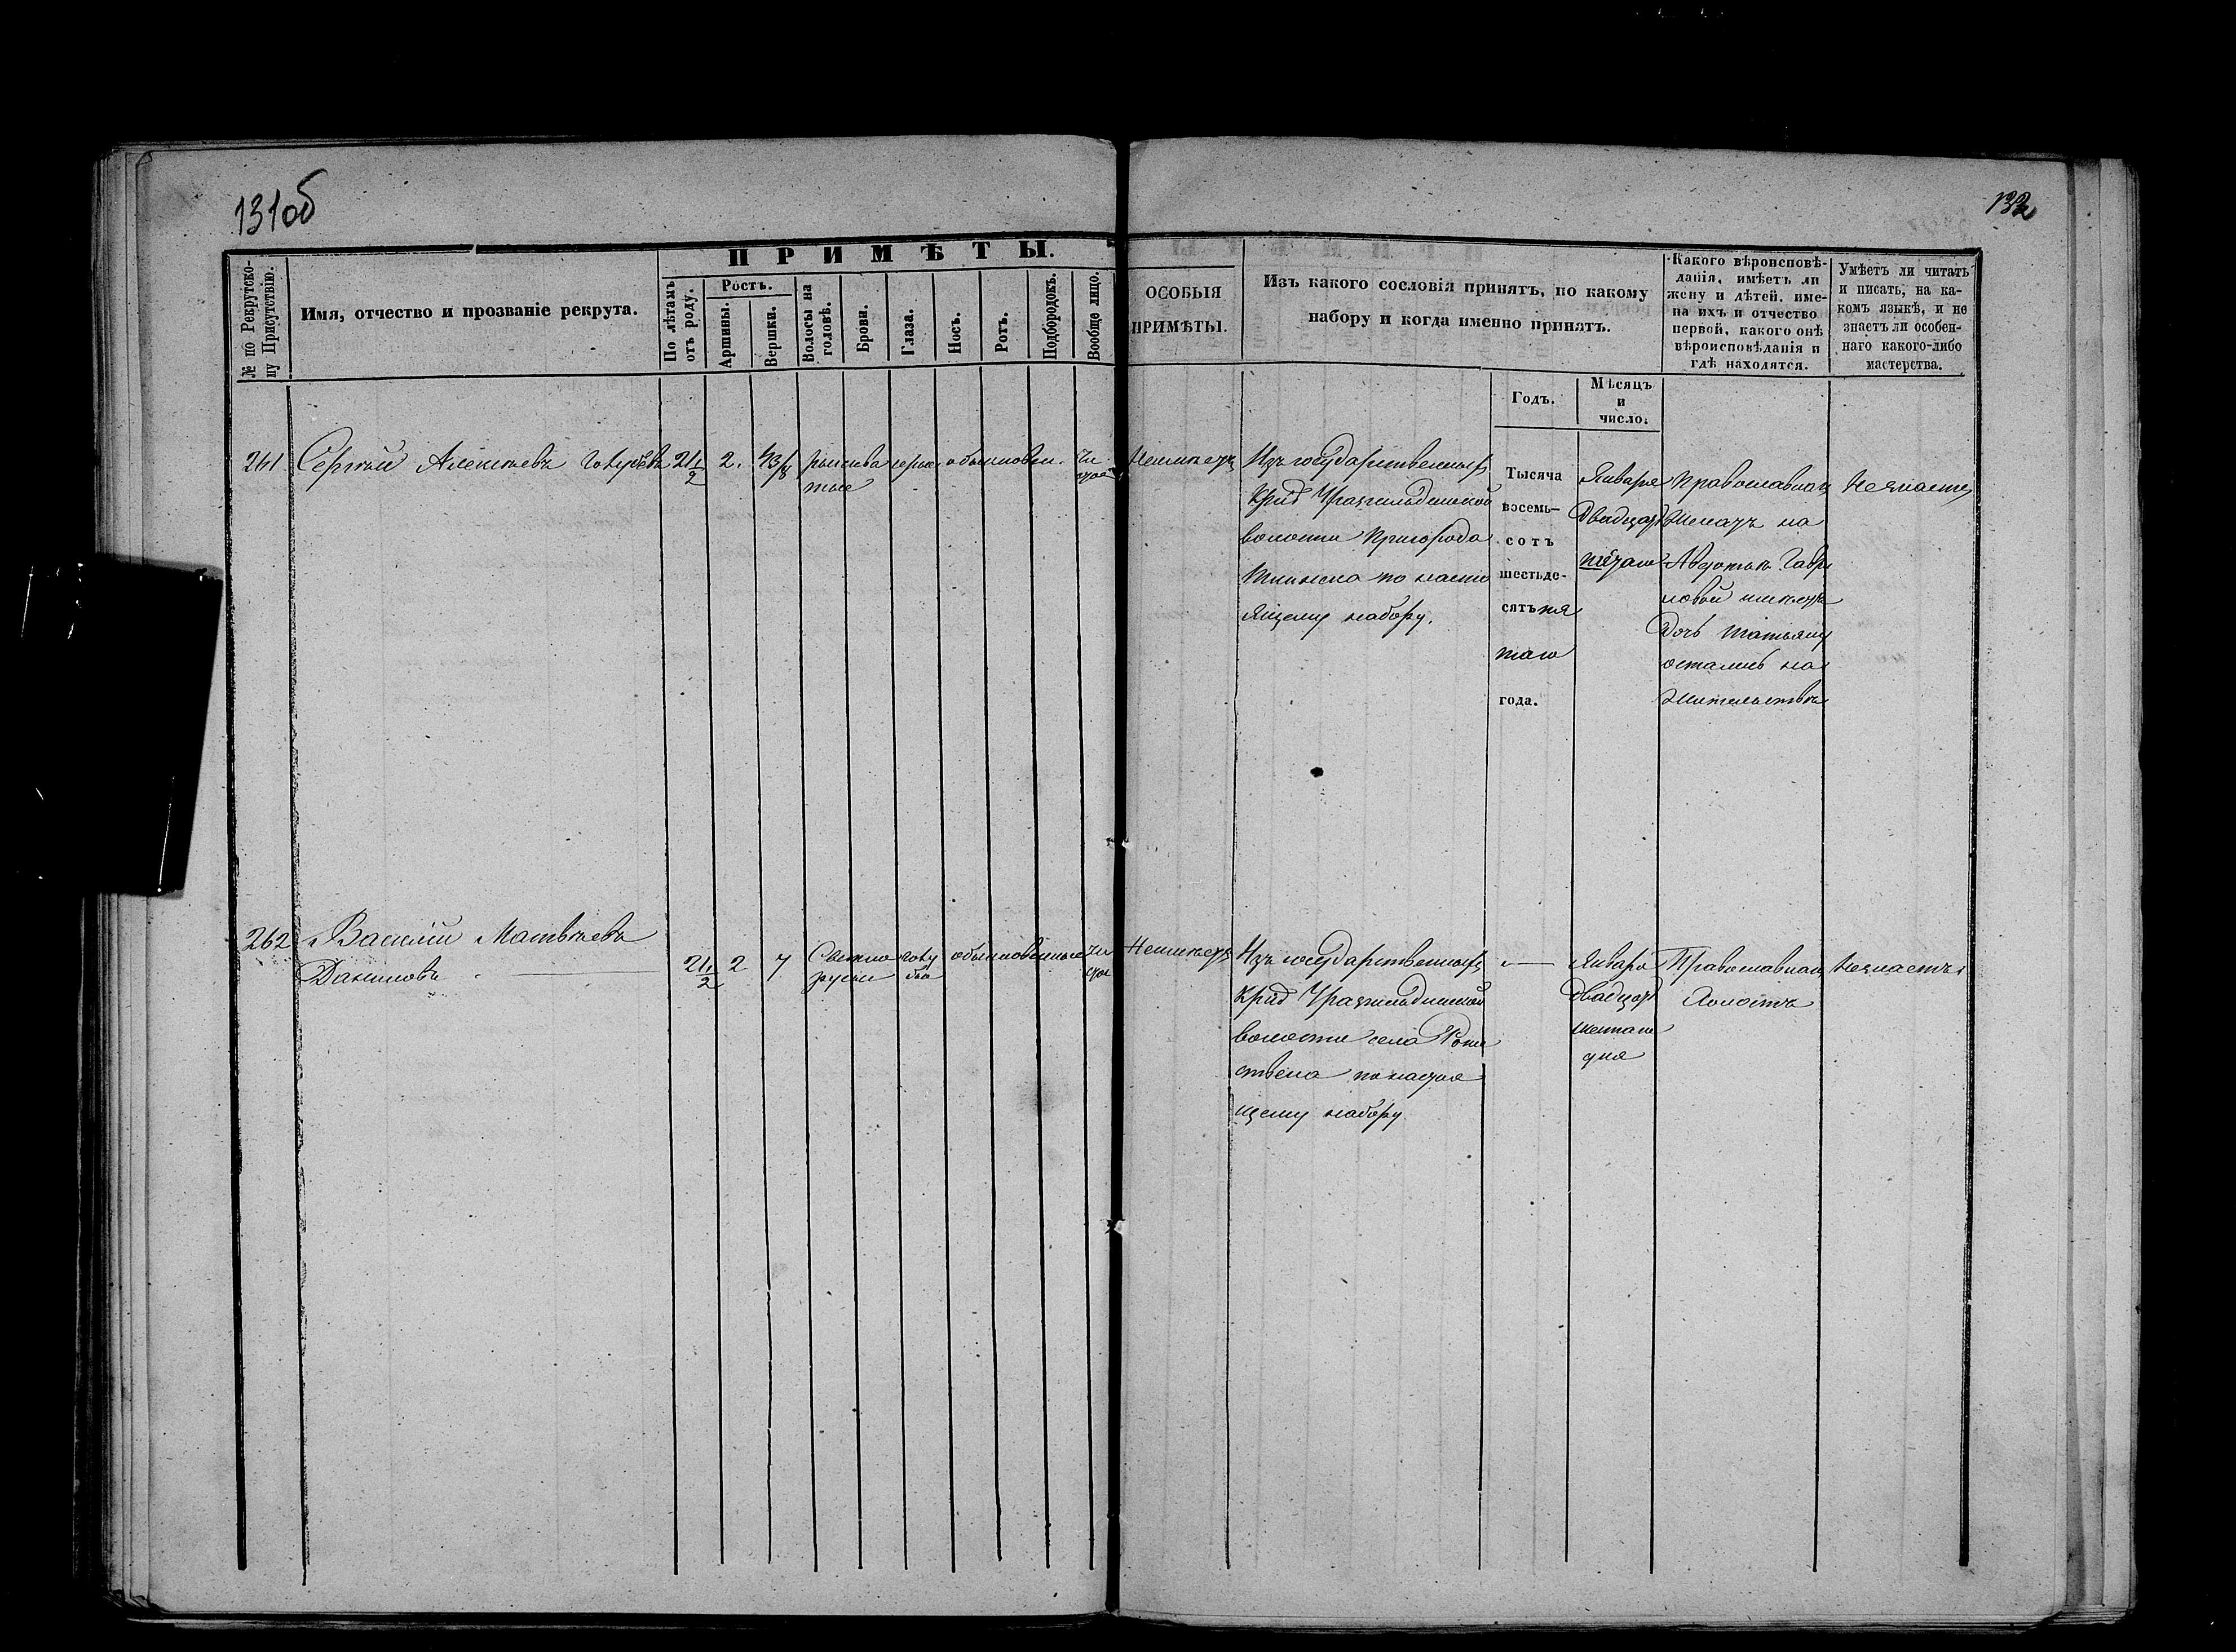 131об
132
ПРИМѢТЫ.
№ по Рекрутско-
му Присутствію.
Имя, отчество и прозваніе рекрута.
По лѣтамъ
отъ роду.
Ростъ.
Аршины.
Вершки.
Волосы на
головѣ.
Брови.
Глаза.
Носъ.
Ротъ.
Подбородокъ.
Вообще лицо.
ОСОБЫЯ
ПРИМѢТЫ.
Изъ какого сословія принятъ, по какому
набору и когда именно принятъ.
Какого вѣроисповѣ-
данія, имѣетъ ли
жену и дѣтей, име-
на ихъ и отчество
первой, какого онѣ
вѣроисповѣданія и
гдѣ находятся.
Умѣетъ ли читать
и писать, на ка-
комъ языкѣ, и не
знаетъ ли особен-
наго какого-либо
мастерства.
Годъ.
Мѣсяцъ
и
число.
261
Сергѣй Алексѣевъ
21 1/2
2.
обыкновен.
чи
стое
Неимѣетъ
Изъ государственныхъ
волости Пригорода
по насто
ящему набору.
Тысяча
восемь-
сотъ
шестьде-
сятъ пя
таго
года.
Января
двадцать
Православнаго
Женатъ на
Авдотьѣ Гаври
ловой имѣетъ
Дочь Татьяну
остались на
Жительствѣ
Незнаетъ
262
Василій Матвѣевъ
Даниловъ
21 1/2
2
7
Светло
русые
голу
бые
обыкновенные
чи
стое
Неимѣетъ
Изъ государственныхъ
волости села
ственa по настоя
щему набору
Января
двадцать
шестаго
дня
Православнаго
Холостъ
Незнаетъ